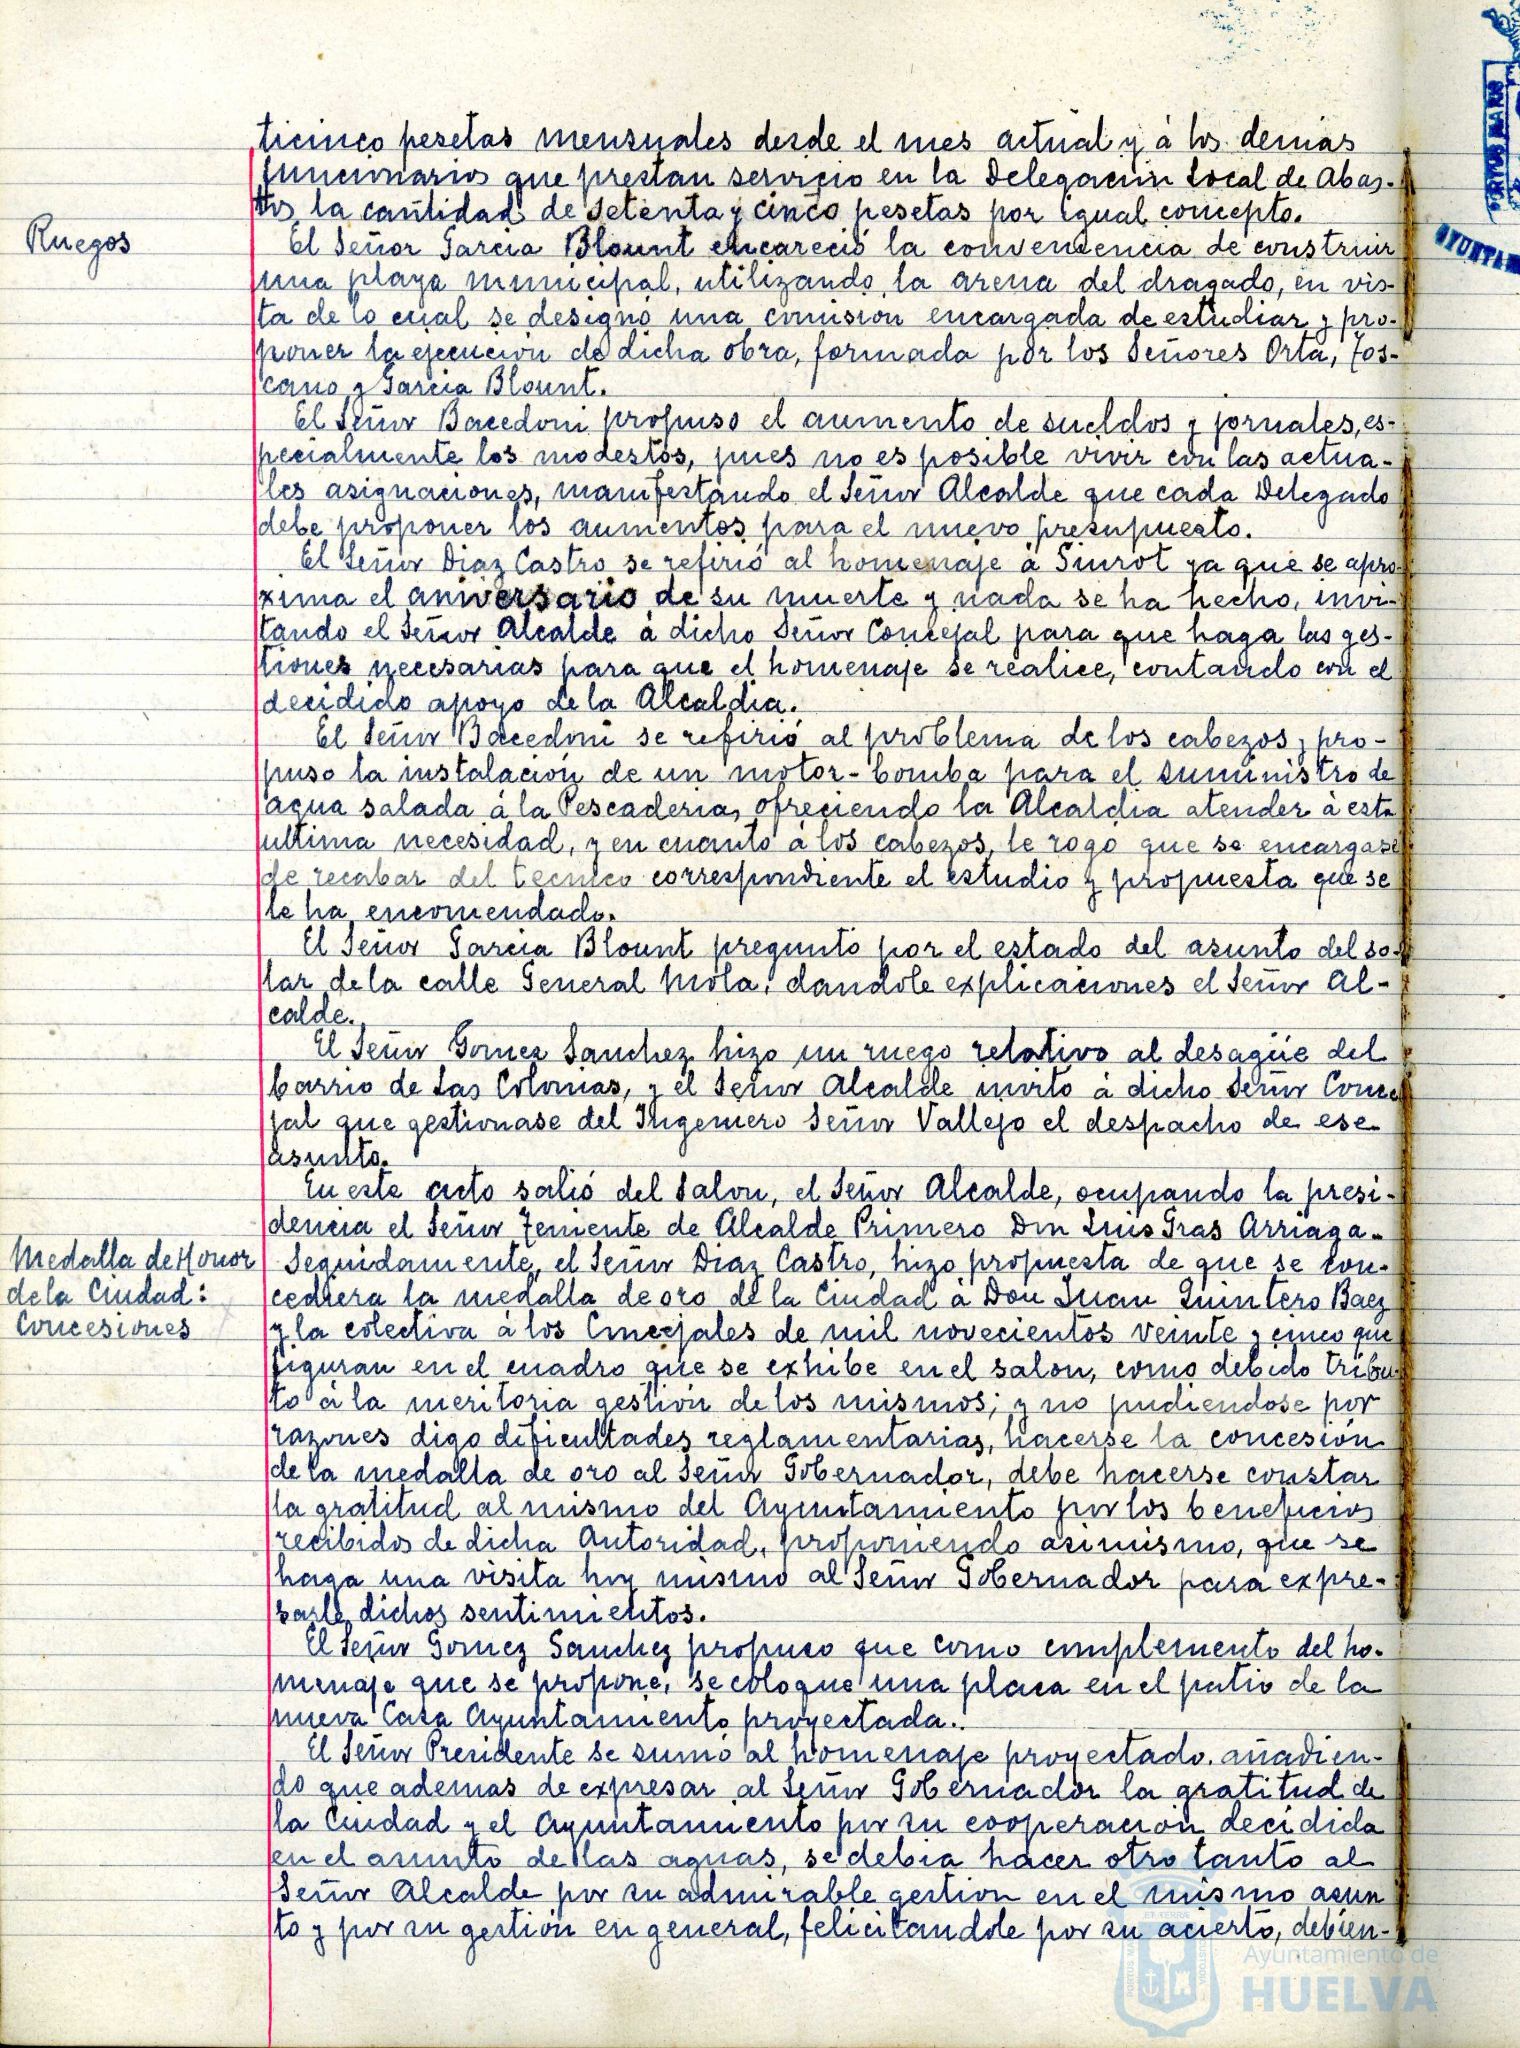 ticinco pesetas mensuales desde el mes actual y á los demás
funcionarios que prestan servicio en la Delegación Local de Abas-
tos, la cantidad de setenta y cinco pesetas por igual concepto.
Ruegos
El Señor García Blount encareció la conveniencia de construir
una playa municipal, utilizando la arena del dragado, en vis-
ta de lo cual se designó una comisión encargada de estudiar y pro-
poner la ejecución de dicha obra, formada por los Señores Orta, Tos-
cano y García Blount.
El Señor Bacedoni propuso el aumento de sueldos y jornales, es-
pecialmente los modestos, pues no es posible vivir con las actua-
les asignaciones, manifestando el Señor Alcalde que cada Delegado
debe proponer los aumentos para el nuevo presupuesto.
El Señor Diaz Castro se refirió al homenaje á Siurot ya que se apro-
xima el aniversario de su muerte y nada se ha hecho, invi-
tando el Señor Alcalde á dicho Señor Concejal para que haga las ges-
tiones necesarias para que el homenaje se realice, contando con el
decidido apoyo de la Alcaldia.
El Señor Bacedoni se refirió al problema de los cabezos y pro-
puso la instalación de un motor-bomba para el suministro de
agua salada á la Pescaderia, ofreciendo la Alcaldia atender á esta
ultima necesidad, y en cuanto á los cabezos, le rogó que se encargase
de recabar del tecnico correspondiente el estudio y propuesta que se
le ha encomendado.
El Señor García Blount preguntó por el estado del asunto del so-
lar de la calle General Mola, dandole explicaciones el Señor Al-
calde.
El Señor Gomez Sanchez hizo un ruego relativo al desagüe del
barrio de Las Colonias, y el Señor Alcalde invitó á dicho Señor Conce
jal que gestionase del Ingeniero Señor Vallejo el despacho de ese
asunto.
En este acto salió del Salon, el Señor Alcalde, ocupando la presi-
dencia el Señor Teniente de Alcalde Primero Don Luis Gras Arriaga.
Medalla de Honor
de la Ciudad:
Concesiones
Seguidamente, el Señor Diaz Castro, hizo propuesta de que se con-
cediera la medalla de oro de la Ciudad á Don Juan Quintero Baez
y la colectiva á los Concejales de mil novecientos veinte y cinco que
figuran en el cuadro que se exhibe en el salon, como debido tribu-
to á la meritoria gestión de los mismos; y no pudiendose por
razones digo dificultades reglamentarias, hacerse la concesión
de la medalla de oro al Señor Gobernador, debe hacerse constar
la gratitud al mismo del Ayuntamiento por los beneficios
recibidos de dicha Autoridad, proponiendo asimismo, que se
haga una visita hoy mismo al Señor Gobernador para expre-
sarle dichos sentimientos.
El Señor Gomez Sanchez propuso que como complemento del ho-
menaje que se propone, se coloque una placa en el patio de la
nueva Casa Ayuntamiento proyectada.
El Señor Presidente se sumó al homenaje proyectado, añadien-
do que ademas de expresar al Señor Gobernador la gratitud de
la Ciudad y el Ayuntamiento por su cooperación decidida
en el asunto de las aguas, se debia hacer otro tanto al
Señor Alcalde por su admirable gestion en el mismo asun
to y por su gestión en general, felicitandole por su acierto, debien-
PORTUS MARIS
AYUNTAM
Ayuntamiento de
HUELVA